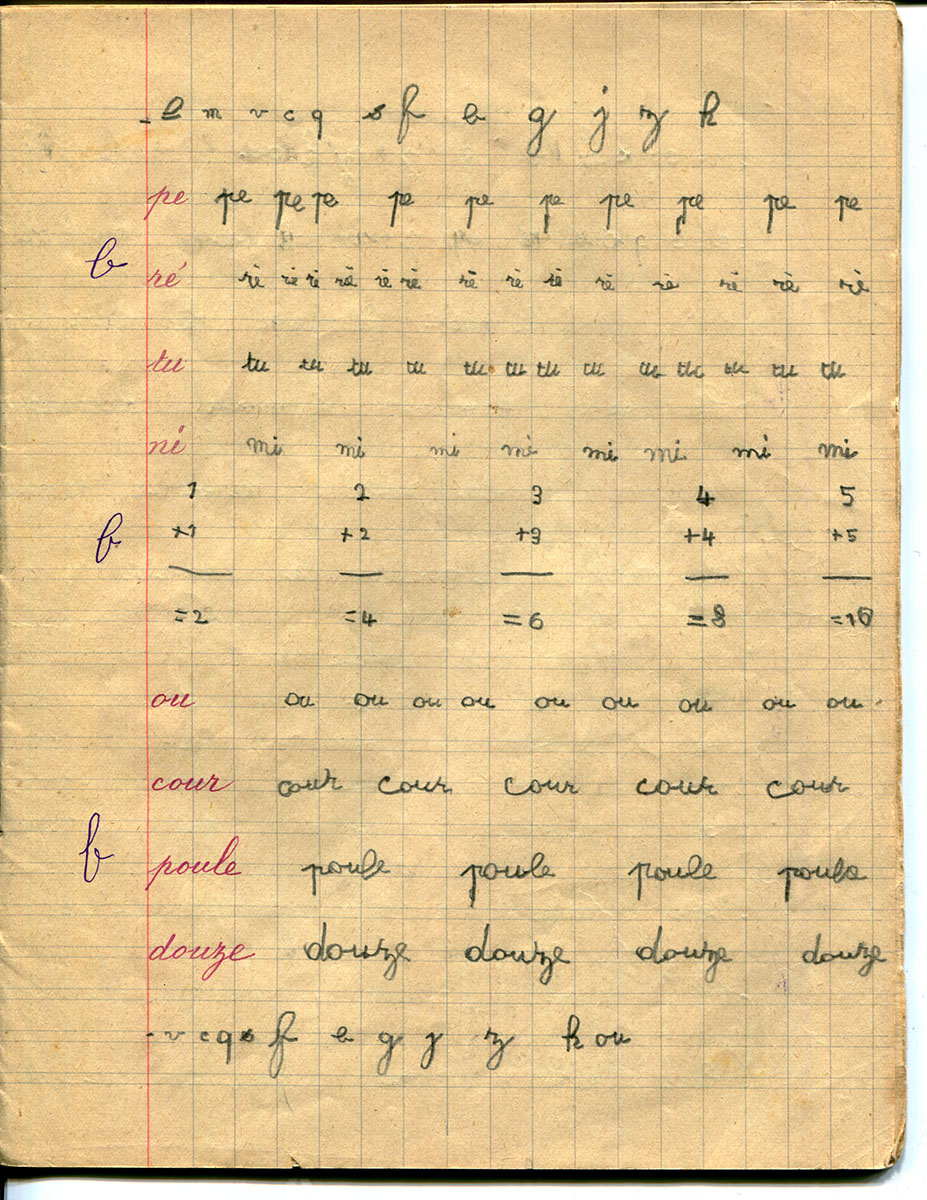 m v c q s f e g j z k
pe pe pe pe pe pe pe pe pe pe pe
b ré ré ré ré ré ré ré ré ré ré ré ré ré ré ré
tu tu tu tu tu tu tu tu tu tu tu tu tu tu
ni mi mi mi mi mi mi mi mi
1 2 3 4 5
b +1 +2 +3 +4 +5
=2 =4 =6 =8 =10
ou ou ou ou ou ou ou ou ou ou
cour cour cour cour cour cour
b poule poule poule poule poule
douze douze douze douze douze
- v c q s f e g j z k ou